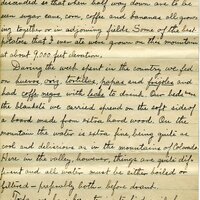 descended so that when half way down are to be
seen sugar cane, corn, coffee and bananas all grow-
ing together or in adjoining fields. Some of the best
potatoes that I ever ate were grown on this mountain
at about 9,000 feet elevation.
During the entire visit in the country we fed
on huevos, tortillas, papas and frijoles and
had coffee negro with leche to drink. Our beds were
the blankets we carried spread on the soft side of
a board made from extra hard wood. On the
mountain the water is extra fine being quite as
cool and delicious as in the mountains of Colorado.
Here in the valley, however, things are quite dif-
ferent and all water must be either boiled or
filtered – preferably both – before drank.